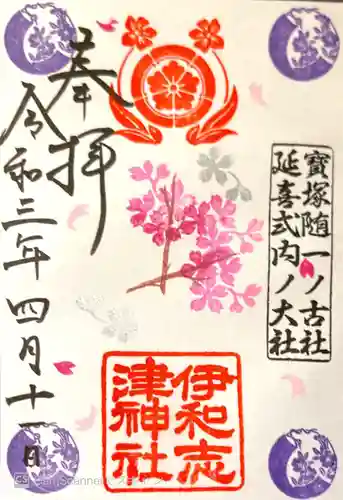 寳塚随一ノ古社
延喜式内ノ大社
奉拝
令和三年四月十一日
伊和志
津神社
CS CamScanner